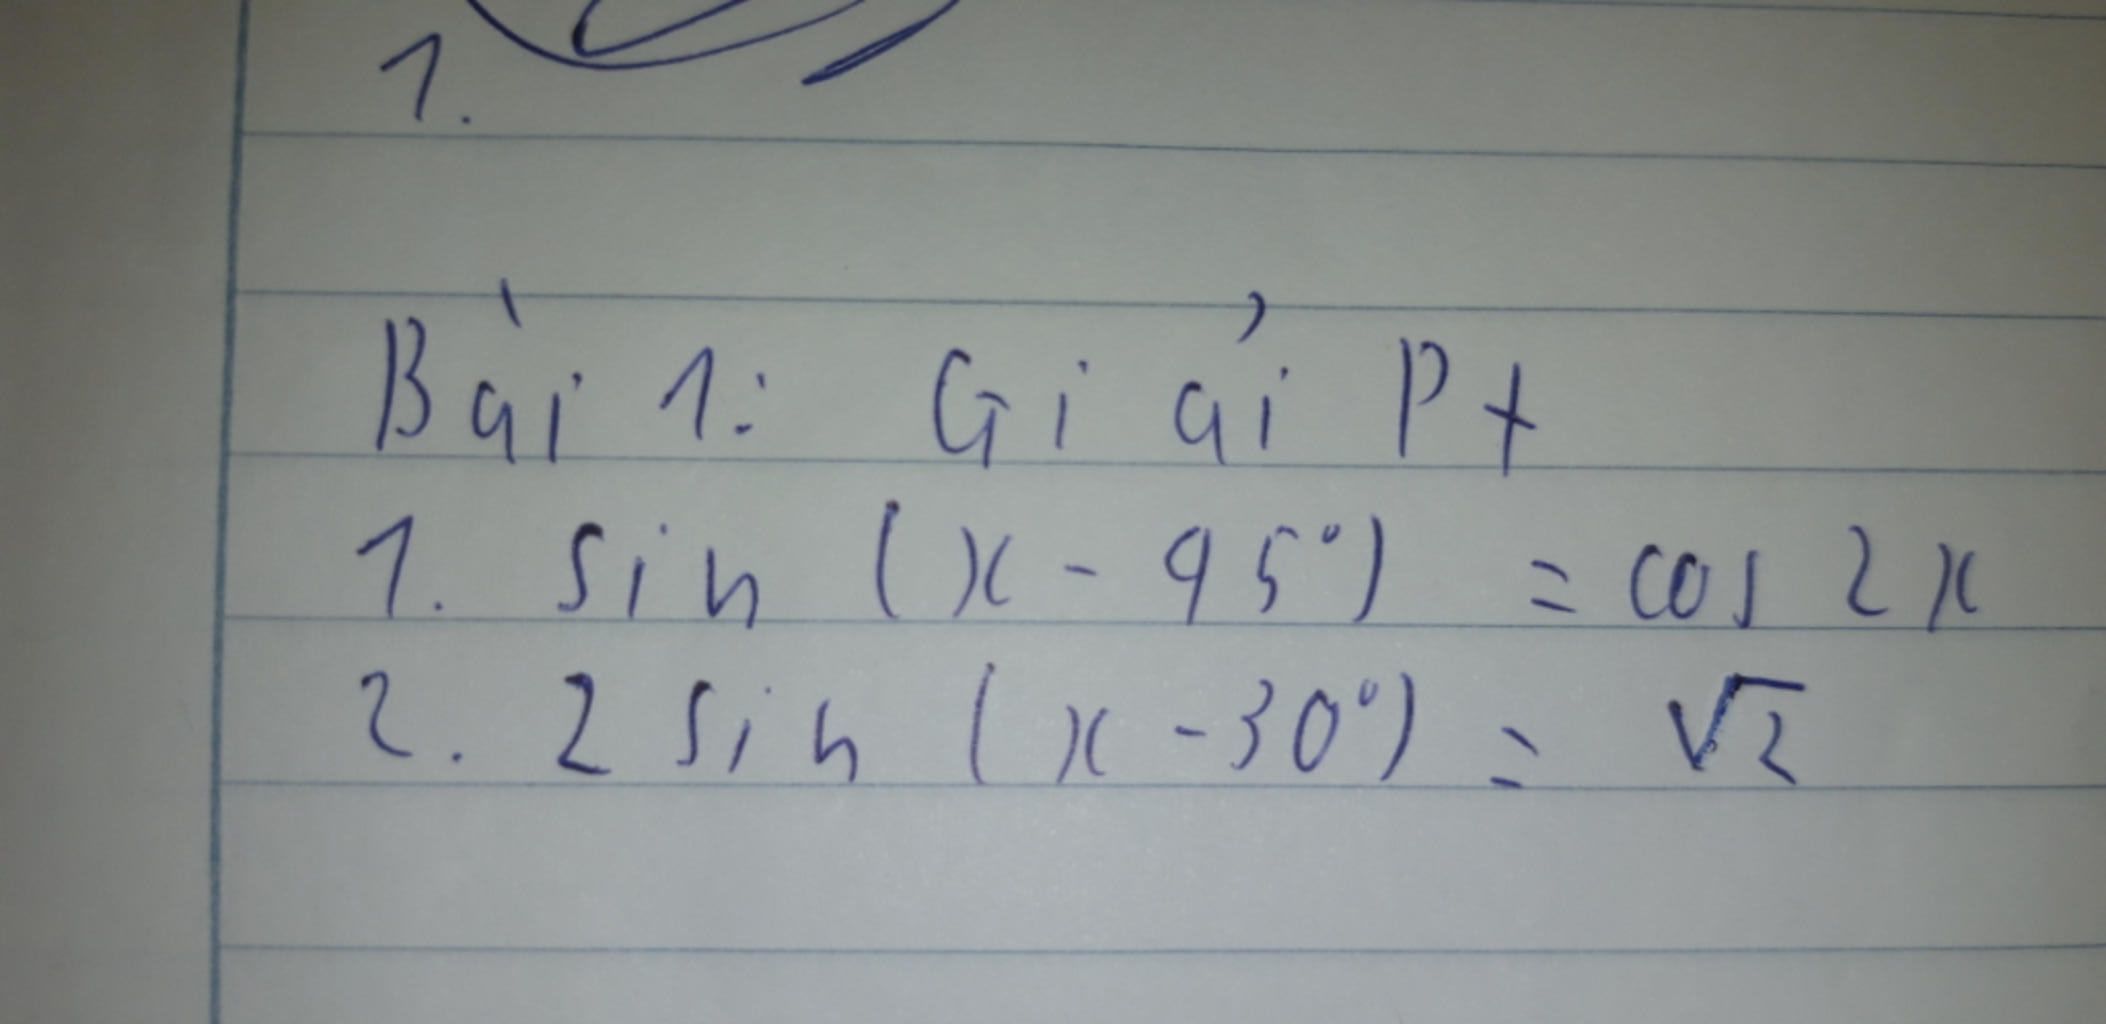 1.
Bài 1: Giải Pt
1. sin (x - 45°) = cos 2x
2. 2 sin (x - 30°) = √2